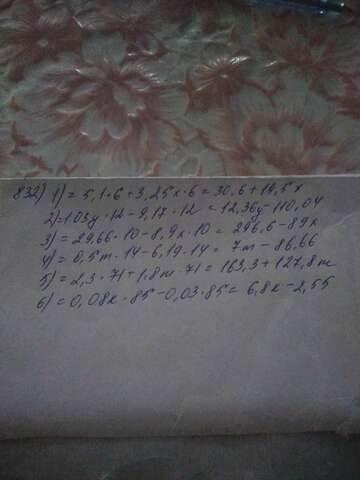 832) 1) = 5,1·6 + 3,25x·6 = 30,6 + 19,5x
2) = 1.03y·12 - 9,17·12 = 12,36y - 110,04
3) = 29,66·10 - 8,9x·10 = 296,6 - 89x
4) = 0,5m·14 - 6,19·14 = 7m - 86,66
5) = 2,3·71 + 1,8m·71 = 163,3 + 127,8m
6) = 0,08x·85 - 0,03·85 = 6,8x - 2,55